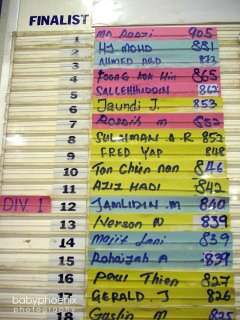 FINALIST
1 MD Roazi 905
2 HJ. MOHD 881
3 AHMED ABD 873
4 FOONG KOK Hin 865
5 SALLEHHUDDIN 862
6 Jaundi J. 853
7 852
8 SULAIMAN A.R 852
9 FRED YAP 848
10 Tan Chun non 846
11 AZIZ HADI 842
DIV. 1 12 JAMLIDIN .M 840
13 Iverson N 839
14 Majit Jani 839
15 Rohaizah A 839
16 Paul Thien 827
17 GERALD. J 826
18 Guslin M 825
babyphoenix
photography